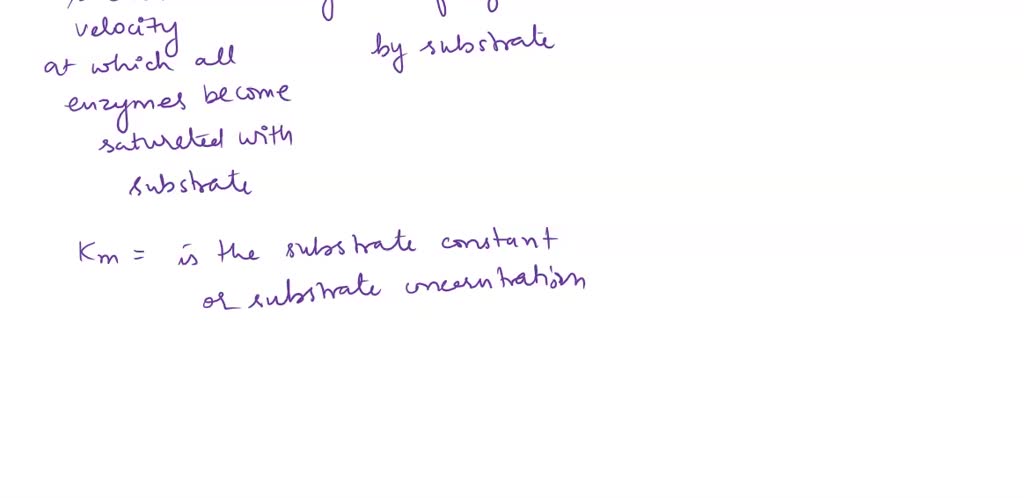 velocity
at which all
enzymes become
satureted with
substrate
by substrate
Km = is the substrate constant
or substrate concentration